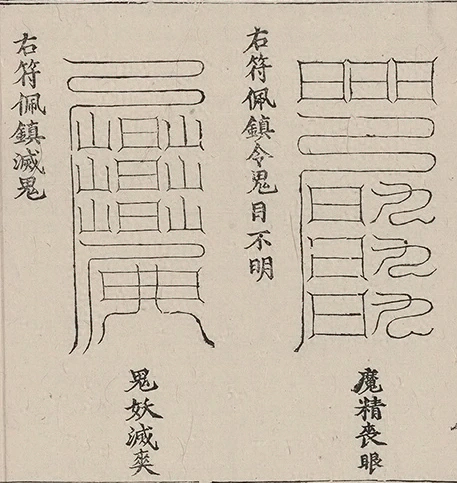 魔精喪眼
右符佩鎮令鬼目不明
鬼妖滅爽
右符佩鎮滅鬼